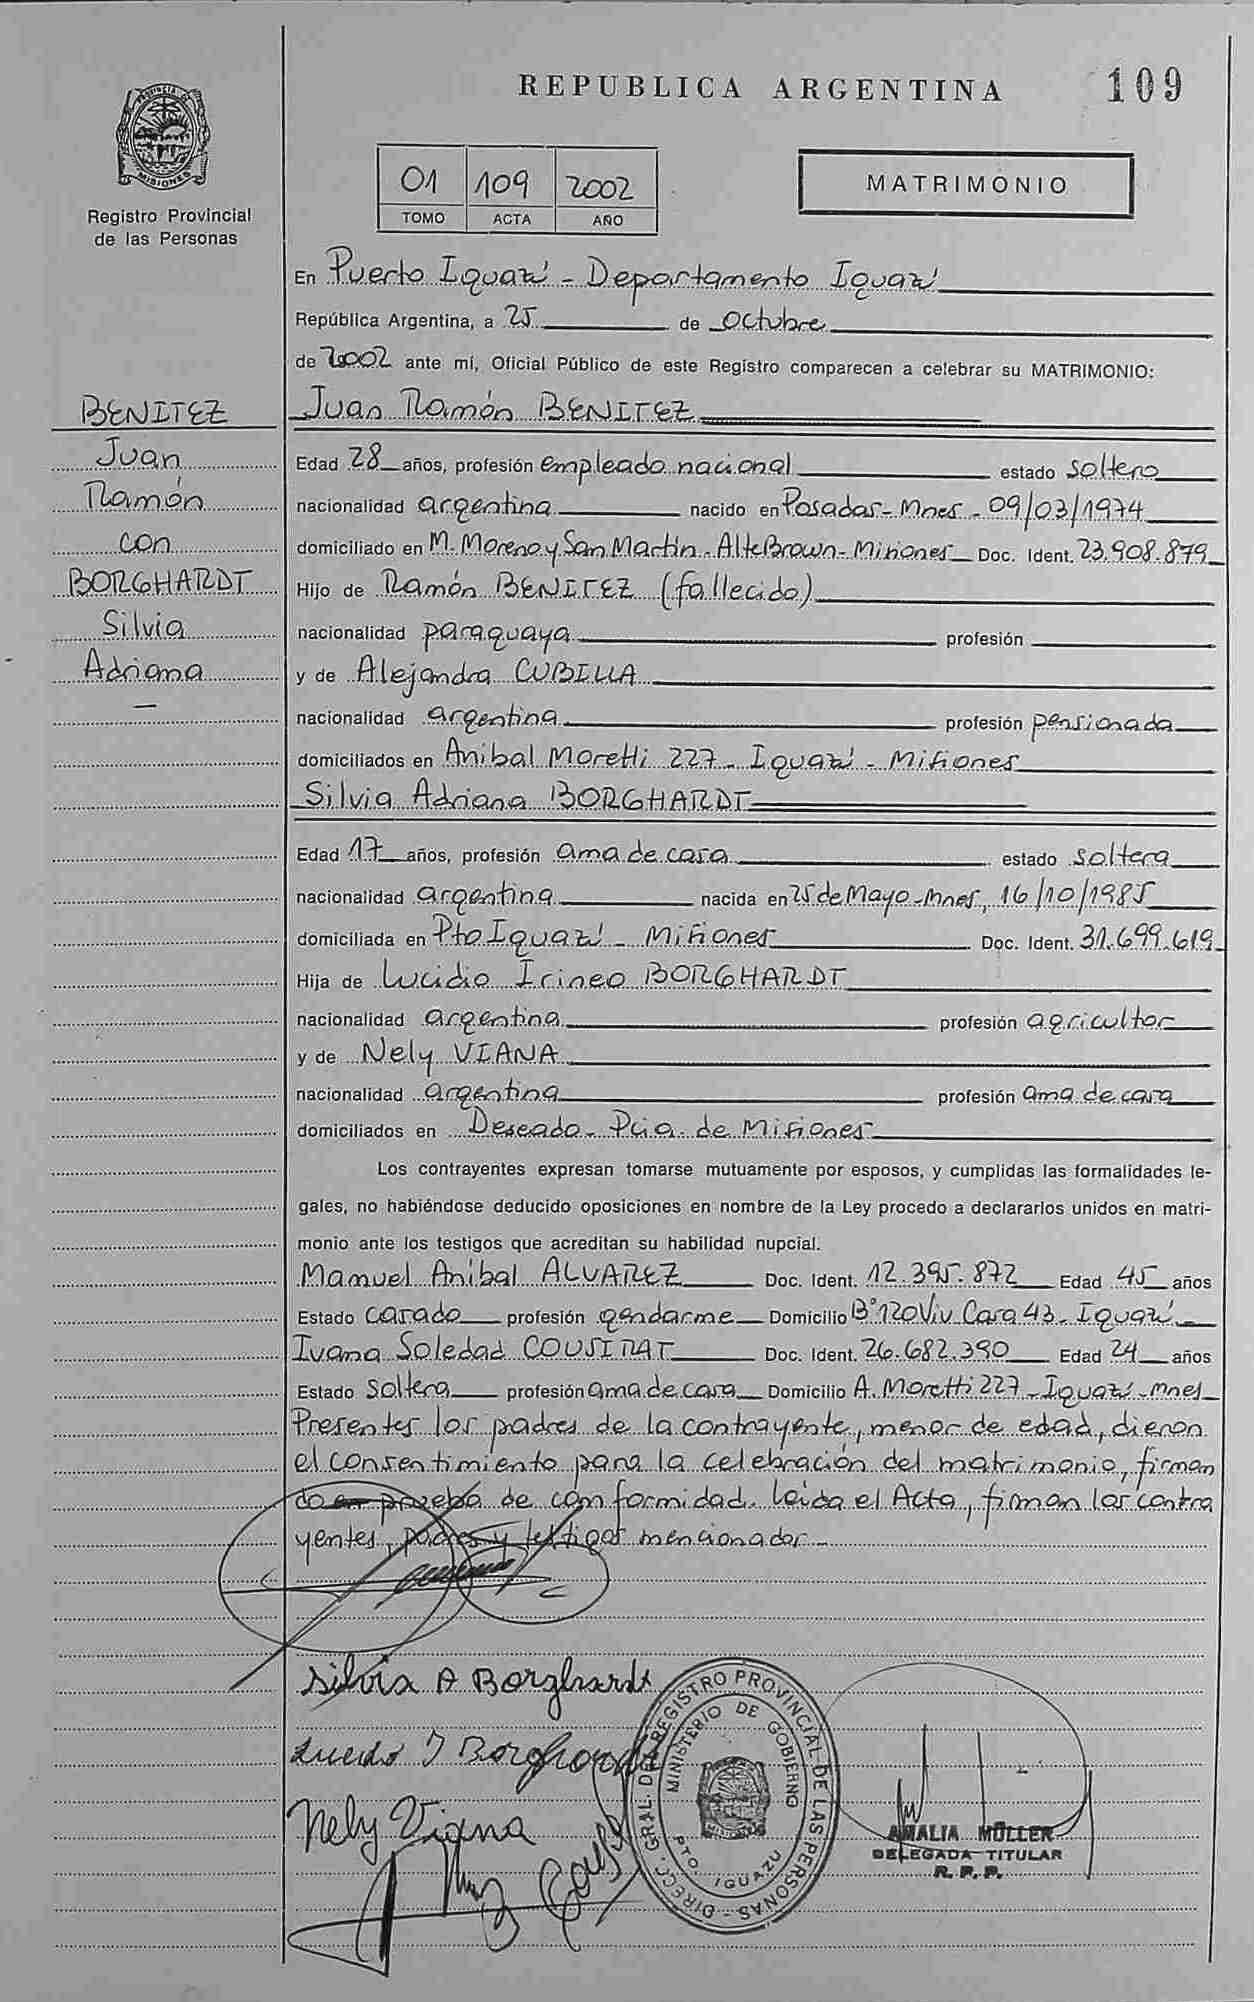 REPUBLICA ARGENTINA
109
PROVINCIA DE
MISIONES
Registro Provincial
de las Personas
01 109 2002
TOMO ACTA AÑO
MATRIMONIO
En Puerto Iguazú - Departamento Iguazú
República Argentina, a 25 de Octubre
de 2002 ante mí, Oficial Público de este Registro comparecen a celebrar su MATRIMONIO:
BENITEZ
Juan
Ramón
con
BORGHARDT
Silvia
Adriana
—
Juan Ramón BENITEZ
Edad 28 años, profesión empleado nacional estado soltero
nacionalidad argentina nacido en Posadas - Mnes - 09/03/1974
domiciliado en M. Moreno y San Martín - Alte Brown - Misiones Doc. Ident. 23.908.879
Hijo de Ramón BENITEZ (fallecido)
nacionalidad paraguaya profesión
y de Alejandra CUBILLA
nacionalidad argentina profesión pensionada
domiciliados en Anibal Moretti 227 - Iguazú - Misiones
Silvia Adriana BORGHARDT
Edad 17 años, profesión ama de casa estado soltera
nacionalidad argentina nacida en 25 de Mayo - Mnes, 16/10/1985
domiciliada en Pto Iguazú - Misiones Doc. Ident. 31.699.619
Hija de Lucidio Irineo BORGHARDT
nacionalidad argentina profesión agricultor
y de Nely VIANA
nacionalidad argentina profesión ama de casa
domiciliados en Deseado - Pcia. de Misiones
Los contrayentes expresan tomarse mutuamente por esposos, y cumplidas las formalidades le-
gales, no habiéndose deducido oposiciones en nombre de la Ley procedo a declararlos unidos en matri-
monio ante los testigos que acreditan su habilidad nupcial.
Manuel Anibal ALVAREZ Doc. Ident. 12.395.872 Edad 45 años
Estado casado profesión gendarme Domicilio B° 120 Viv. Casa 43 - Iguazú
Ivana Soledad COUSIRAT Doc. Ident. 26.682.390 Edad 24 años
Estado soltera profesión ama de casa Domicilio A. Moretti 227 - Iguazú - Mnes
Presentes los padres de la contrayente, menor de edad, dieron
el consentimiento para la celebración del matrimonio, firman
do en prueba de conformidad. Leída el Acta, firman los contra
yentes, padres y testigos mencionados -
Silvia A Borghardt
Lucidio I Borghardt
Nely Viana
DIRECC. GRAL. DEL REGISTRO PROVINCIAL DE LAS PERSONAS -
MINISTERIO DE GOBIERNO
PTO. IGUAZU
AMALIA MÜLLER
DELEGADA TITULAR
R. P. P.